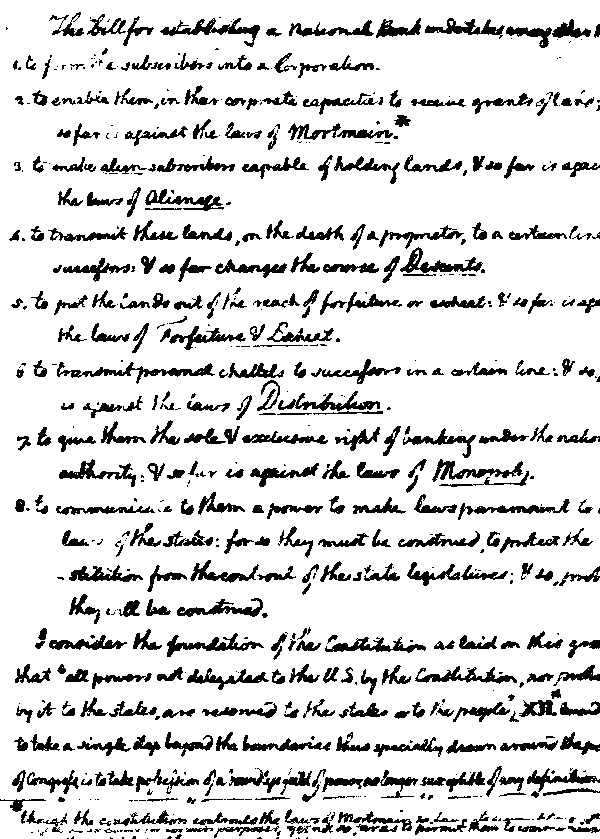 The bill for establishing a National Bank undertakes, among other
1. to form the subscribers into a Corporation.
2. to enable them, in their corporate capacities to receive grants of land;
so far is against the laws of Mortmain.*
3. to make alien subscribers capable of holding lands, & so far is
the laws of Alienage.
4. to transmit these lands, on the death of a proprietor, to a certain line
successors: & so far changes the course of Descents.
5. to put the lands out of the reach of forfeiture or escheat: & so far is
the laws of Forfeiture & Escheat.
6 to transmit personal chattels to successors in a certain line: & so
is against the laws of Distribution.
7. to give them the sole & exclusive right of banking under the
authority: & so far is against the laws of Monopoly.
8. to communicate to them a power to make laws paramount to
laws of the states: for so they must be construed, to protect the
-stitution from the controul of the state legislatures; & so,
they will be construed.
I consider the foundation of the Constitution as laid on this
that "all powers not delegated to the U.S. by the Constitution, nor
by it to the states, are reserved to the states or to the people", XII*
to take a single step beyond the boundaries thus specially drawn around the
of Congress, is to take possession of a boundless feild of power, no longer susceptible of any definition
* though the constitution controuls the laws of Mortmain so far